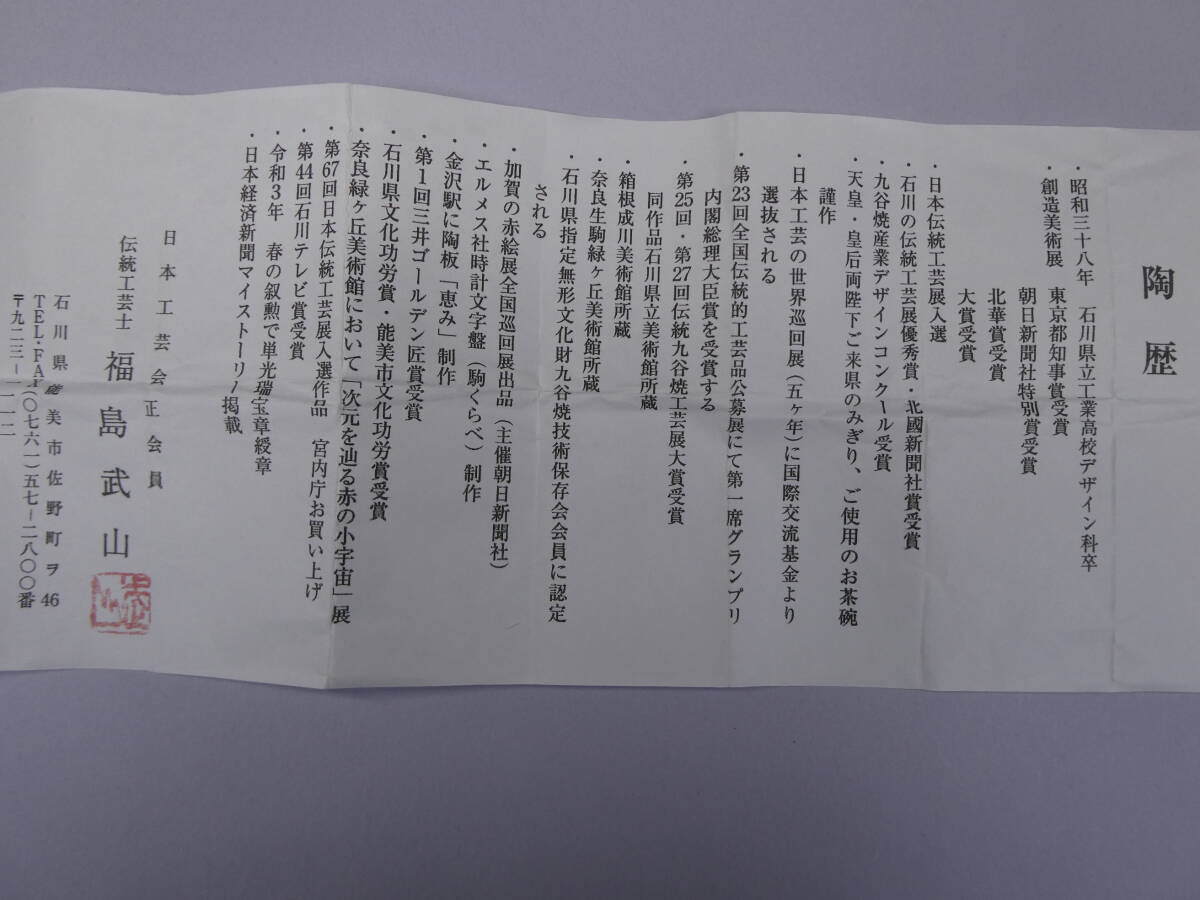 陶歴
・昭和三十八年　石川県立工業高校デザイン科卒
・創造美術展　東京都知事賞受賞
朝日新聞社特別賞受賞
北華賞受賞
大賞受賞
・日本伝統工芸展入選
・石川の伝統工芸展優秀賞・北國新聞社賞受賞
・九谷焼産業デザインコンクール受賞
・天皇・皇后両陛下ご来県のみぎり、ご使用のお茶碗
謹作
・日本工芸の世界巡回展（五ヶ年）に国際交流基金より
選抜される
・第23回全国伝統的工芸品公募展にて第一席グランプリ
内閣総理大臣賞を受賞する
・第25回・第27回伝統九谷焼工芸展大賞受賞
同作品石川県立美術館所蔵
・箱根成川美術館所蔵
・奈良生駒緑ヶ丘美術館所蔵
・石川県指定無形文化財九谷焼技術保存会会員に認定
される
・加賀の赤絵展全国巡回展出品（主催朝日新聞社）
・エルメス社時計文字盤（駒くらべ）制作
・金沢駅に陶板「恵み」制作
・第1回三井ゴールデン匠賞受賞
・石川県文化功労賞・能美市文化功労賞受賞
・奈良緑ヶ丘美術館において「次元を辿る赤の小宇宙」展
・第67回日本伝統工芸展入選作品　宮内庁お買い上げ
・第44回石川テレビ賞受賞
・令和3年　春の叙勲で単光瑞宝章綬章
・日本経済新聞マイストーリー掲載
日本工芸会正会員
伝統工芸士　福島武山
石川県能美市佐野町ヲ46
TEL・FAX（〇七六一）五七－二八〇〇番
〒九二三－一一一二